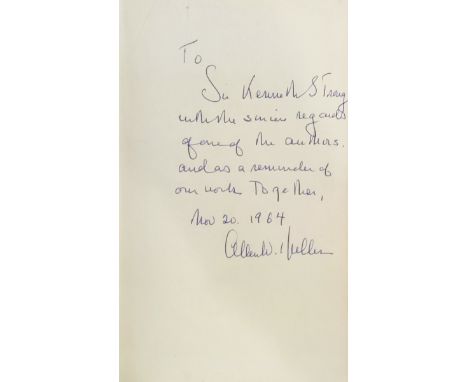 To
Sir Kenneth Strong
with the sincere regards
of one of the authors.
and as a reminder of
our work together,
Nov 20. 1964
Allen W. Dulles